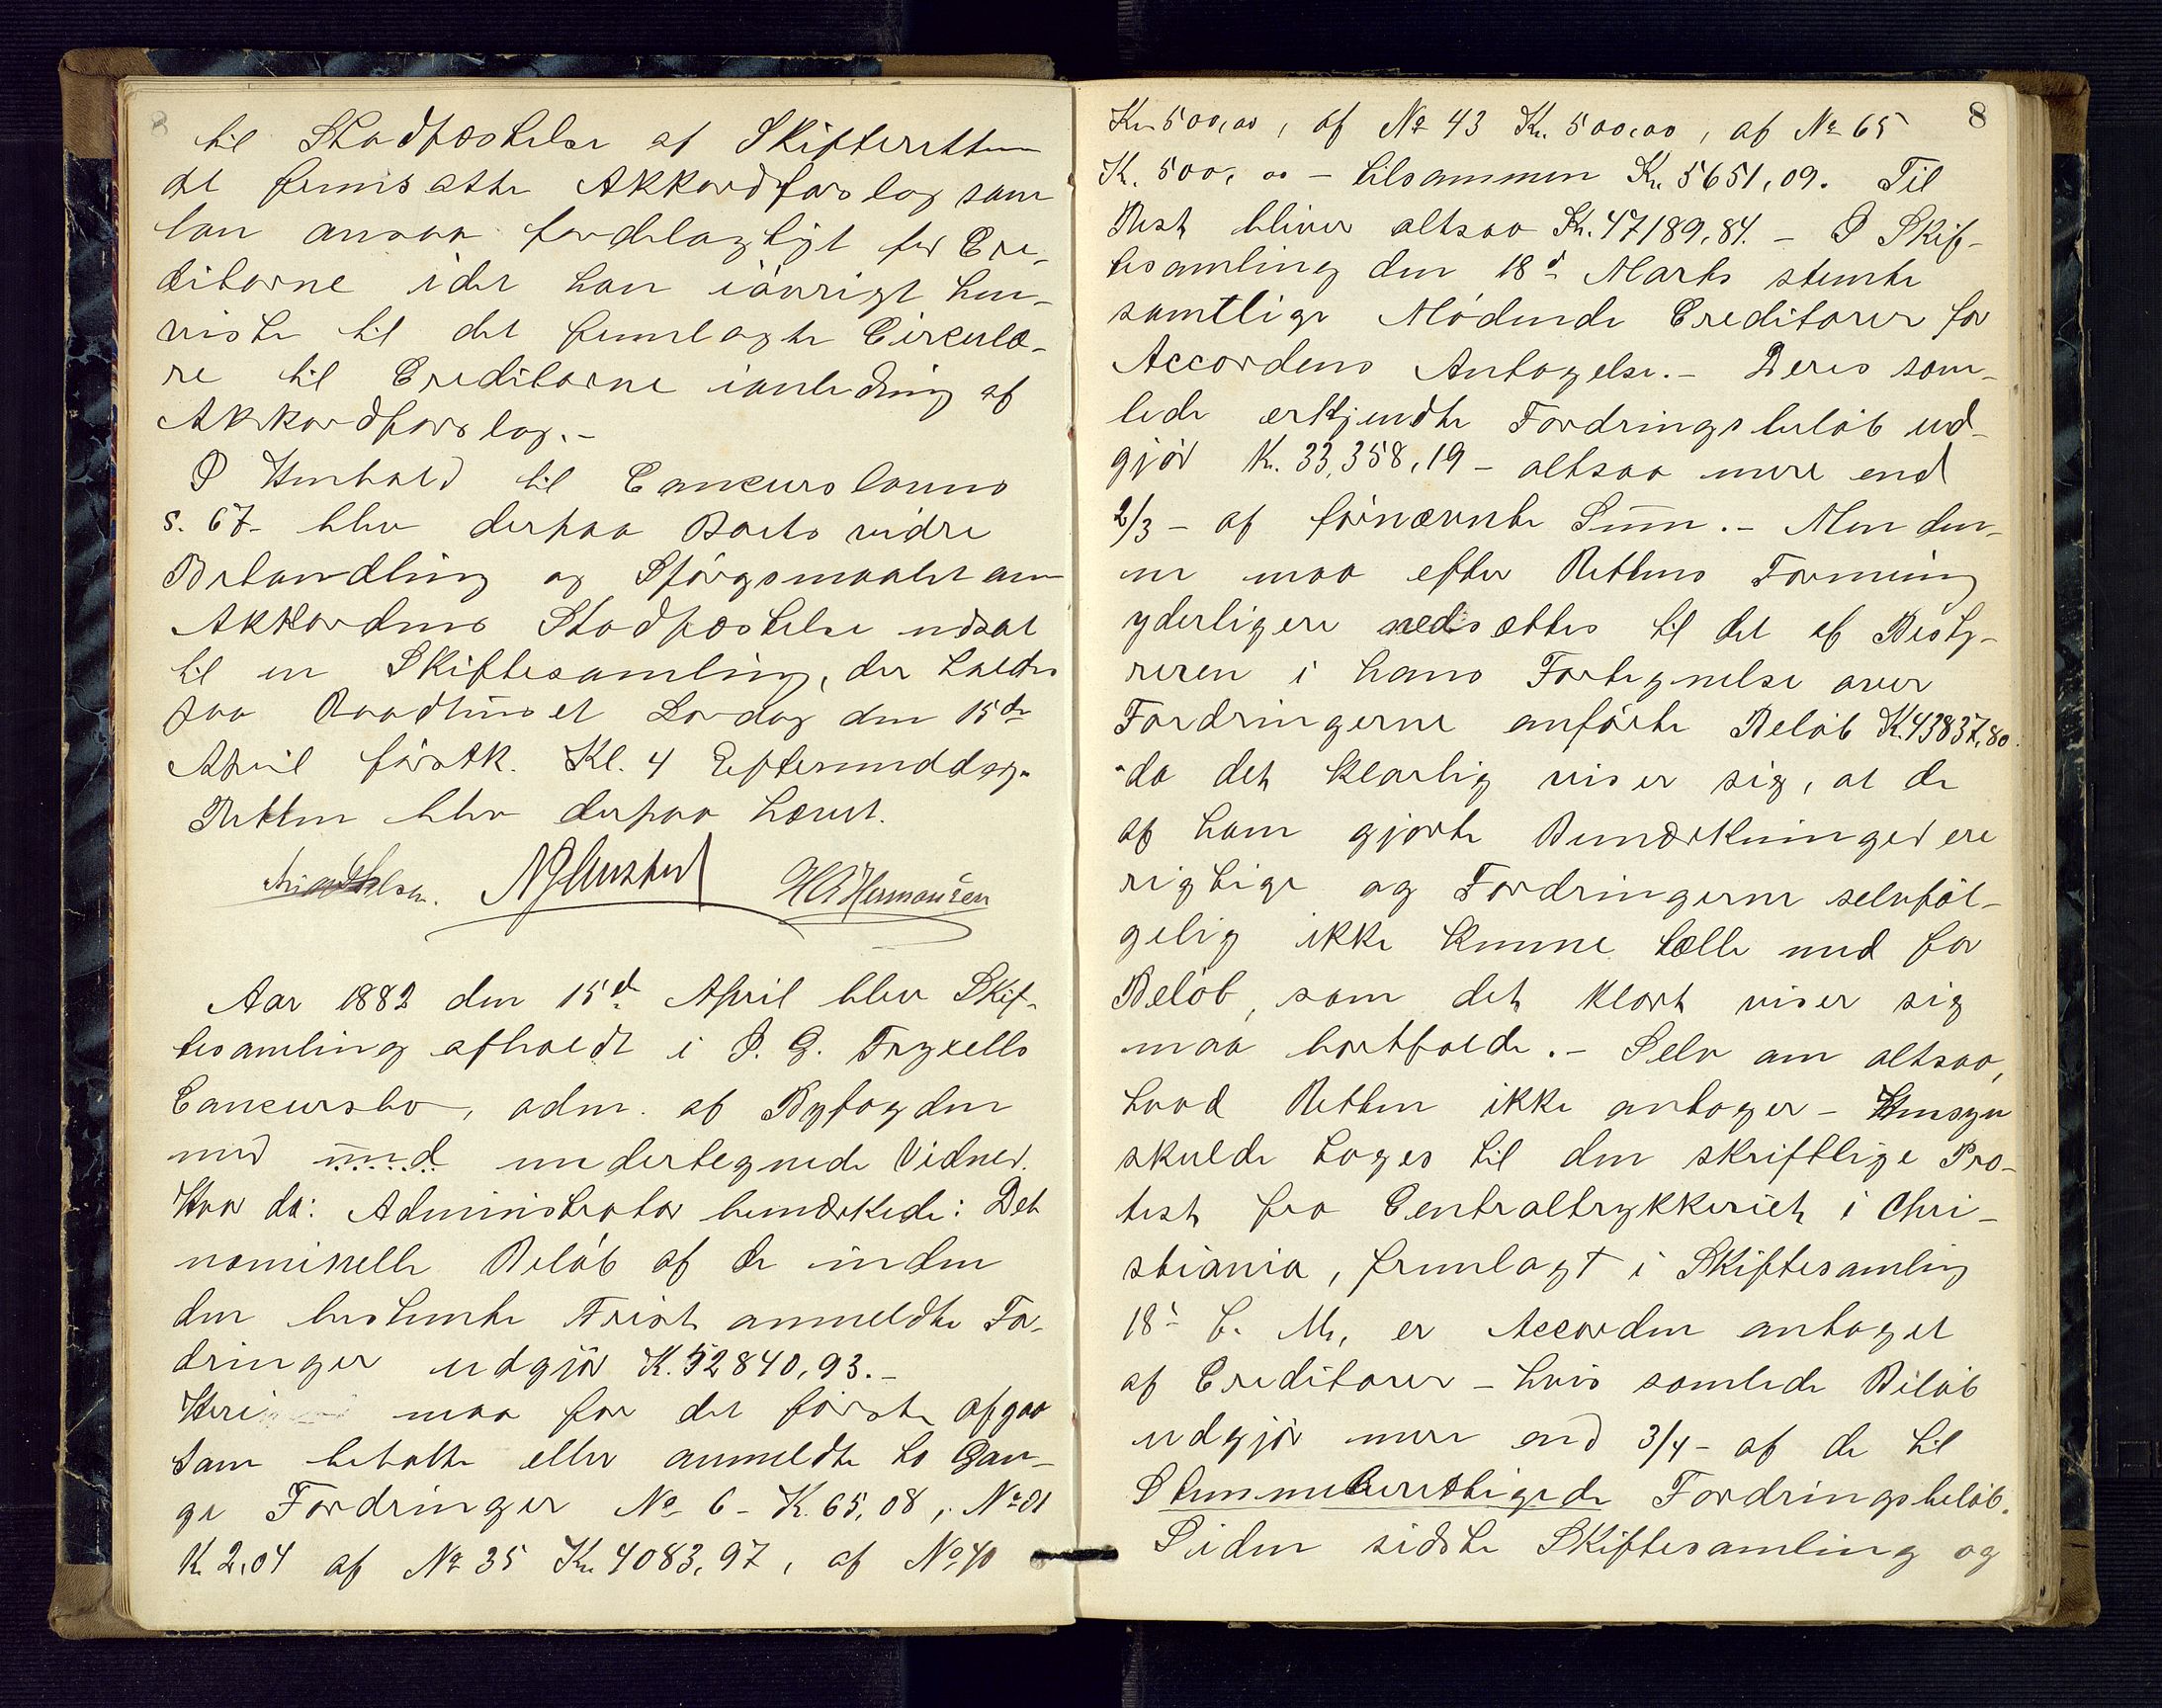 til Stadfæstelse af Skifteretten
det fremsatte Akkordforslag som
han ansaa fordelagtigt for Cre-
ditorne idet han iøvrigt hen-
viste til det fremlagte Circulæ-
re til Creditorne ianledning af
Akkordforslag.-
I Henhold til Concurslovens
s. 67- blev derpaa Boets videre
Behandling og Spørgsmaalet om
Akkordens Stadfæstelse udsat
til en Skiftesamling, der holdes
paa Raadhuset Lørdag den 15de
April førstk. Kl. 4 Eftermiddag.
Retten blev derpaa hævet.
H C Hermansen
Aar 1882 den 15d April blev Skif-
tesamling afholdt i I. G. Fryxells
Concursbo, adm. af Byfogden
med med undertegnede Vidner.
Hvor da: Administrator bemærkede: Det
nominelle Beløb af de inden
den bestemte Frist anmeldte For-
dringer udgjør K. 52840,93.-
Heri maa for det første afgaa
som betalte eller anmeldte to Gan-
ge Fordringer No 6 - K. 65,08, No 21
K 2,04 af No 35 Kr. 4083,97, af No 40
8
Kr 500,00, af No 43 Kr. 500,00, af No 65
K. 500,00 - tilsammen Kr. 5651,09. Til
Rest bliver altsaa Kr. 47189,84. - I Skif-
tesamling den 18d Marts stemte
samtlige Mødende Creditorer for
Accordens Antagelse.- Deres sam-
lede erkjendte Fordringsbeløb ud-
gjør K. 33,358,19 - altsaa mere end
2/3 - af førnævnte Sum.- Men den-
ne maa efter Rettens Formening
yderligere nedsættes til det af Besty-
reren i hans Fortegnelse over
Fordringerne anførte Beløb K. 43837,80.
da det klarlig viser sig, at de
af ham gjorte Bemærkninger ere
rigtige og Fordringerne selvføl-
gelig ikke kunne tælle med for
Beløb, som det klart viser sig
maa bortfalde.- Selv om altsaa,
hvad Retten ikke antager - Hensyn
skulde tages til den skriftlige Pro-
test fra Centraltrykkeriet i Chri-
stiania, fremlagt i Skiftesamling
18de f. M, er Accorden antaget
af Creditorer - hvis samlede Beløb
udgjør mere end 3/4 - af de til
Stemmeberettigede Fordringsbeløb.
Siden sidste Skiftesamling og